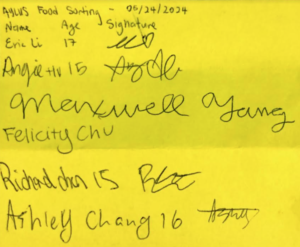 AGLVS Food Sorting - 05/24/2024
Name Age Signature
Eric Li 17
Angie Hu 15
Maxwell Yang
Felicity Chu
Richard chan 15
Ashley Chang 16 Ashley